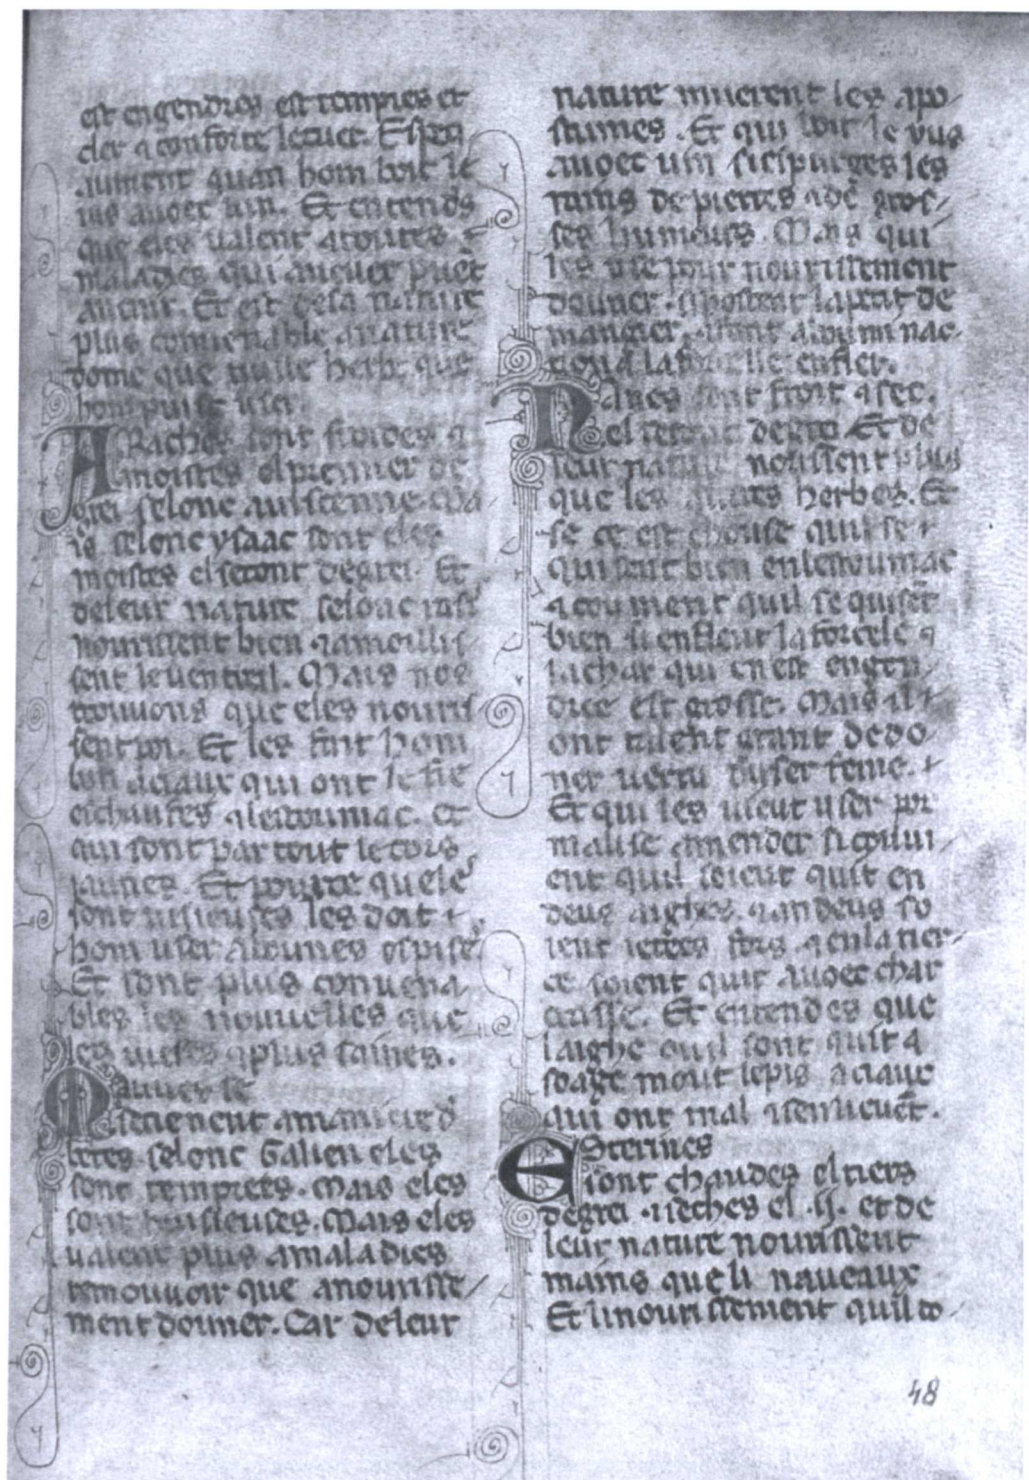 est engendres est tempies et
cler ⁊ conforte le cuer. Espeti
aument quan hom boit le
ius auoec uin. Et entends
que eles ualent a toutes
maladies qui au cuer puet
auenir. Et est de sa nature
plus conuenable a nature
dome que nulle herbe que
hom puist user
Araches sont froides ⁊
moistes el premier de
grei selonc auiscenne. Ma
is selonc ysaac sont eles
moistes el secont degrei. Et
de leur nature selonc
nourissent bien ⁊ amollis
sent le uentreil. Mais nos
trouuons que eles nouris
sent poi. Et les fait hom
a ciaux qui ont le fie
eschaufes ⁊ lestoumac. et
qui sont par tout le cors
jaunes. Et pource quele
sont uisieuses les doit
hom user a bounes espises
Et sont plus conuena
bles les nouuelles que
les uieses ⁊ plus saines.
Mauues se
tienent a maniere d
betes selonc Galien eles
sont temprees. Mais eles
sont uisieuses. Mais eles
ualent plus a maladies
remouuoir que a nourisse
ment donner. Car de leur
nature muerent les apo
stumes. Et qui boit le yus
auoec uin si espurges les
rains de pierres ⁊ de gros
ses humeurs. Mais qui
les use pour nourissement
douner. si postent lapetit de
mangier. ⁊ font
la enfler.
Naues sont froit ⁊ sec.
el secont degre Et de
leur nature nourissent plus
que les autres herbes. Et
se ce est chouse quil se
quisent bien en lestoumac
⁊ coument quil se quiset
bien il enfleut la forcele ⁊
la char qui en est engen
dree est grosse. Mais il
ont talent grant de do
ner uertu duser feme.
Et qui les uieut user por
malise amender si conui
ent quil soient quit en
deus aighes. ⁊ an deus so
ient ietees fors. ⁊ en la tier
ce soient quit auoec char
crasse. Et entendes que
laighe ou il sont quit ⁊
soage mout le pis a ciaux
qui ont mal
Esterines
sont chaudes el tiers
degrei ⁊ seches el .ij. et de
leur nature nourissent
mains que li naueaux
Et li nourissement quil do
48